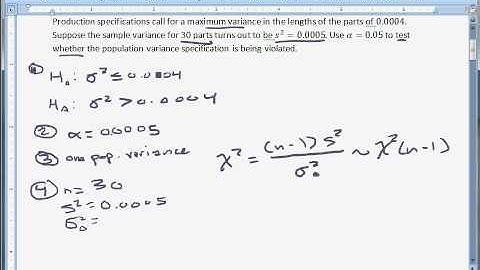 Production specifications call for a maximum variance in the lengths of the parts of 0.0004.
Suppose the sample variance for 30 parts turns out to be s² = 0.0005. Use α = 0.05 to test
whether the population variance specification is being violated.
① H₀: σ² ≤ 0.0004
H_A: σ² > 0.0004
② α = 0.0005
③ one pop. variance
χ² = (n-1) s² / σ₀² ~ χ²(n-1)
④ n = 30
s² = 0.0005
σ₀² =